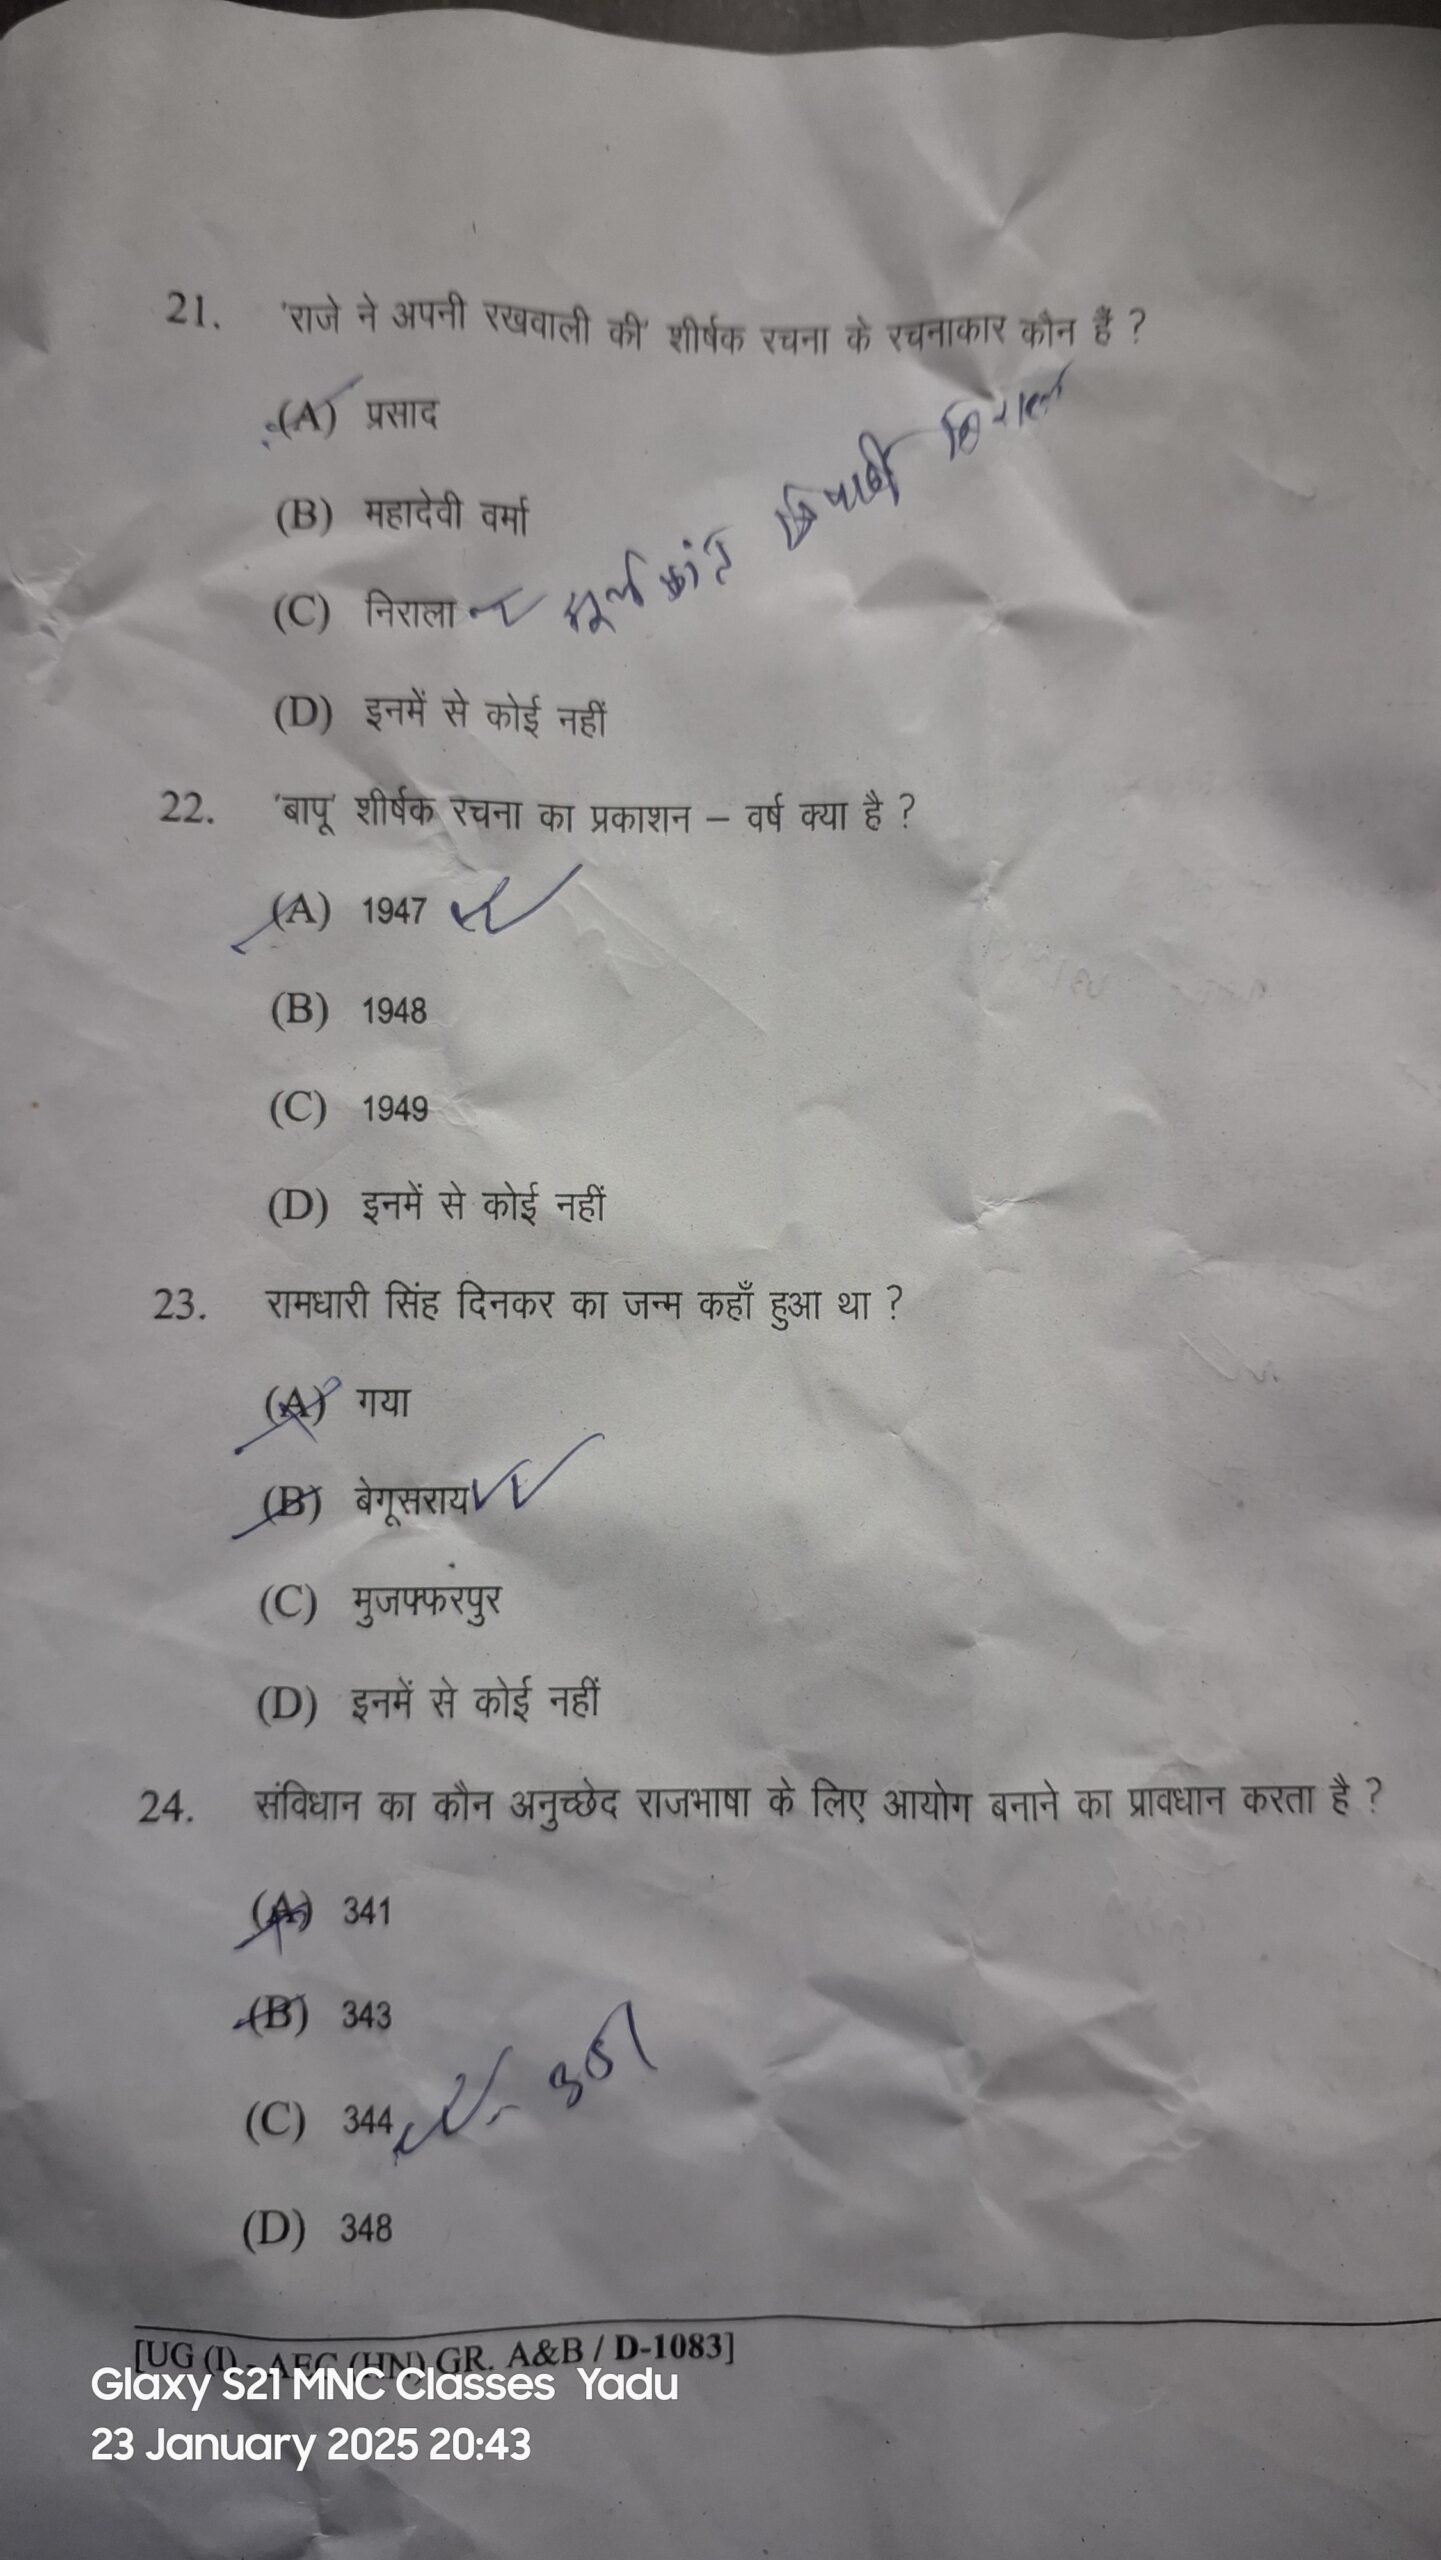 21. 'राजे ने अपनी रखवाली की' शीर्षक रचना के रचनाकार कौन हैं ?
(A) प्रसाद
(B) महादेवी वर्मा
(C) निराला
(D) इनमें से कोई नहीं
22. 'बापू' शीर्षक रचना का प्रकाशन – वर्ष क्या है ?
(A) 1947
(B) 1948
(C) 1949
(D) इनमें से कोई नहीं
23. रामधारी सिंह दिनकर का जन्म कहाँ हुआ था ?
(A) गया
(B) बेगूसराय
(C) मुजफ्फरपुर
(D) इनमें से कोई नहीं
24. संविधान का कौन अनुच्छेद राजभाषा के लिए आयोग बनाने का प्रावधान करता है ?
(A) 341
(B) 343
(C) 344
(D) 348
[UG (I) - AEC (HN) GR. A&B / D-1083]
Glaxy S21 MNC Classes Yadu
23 January 2025 20:43